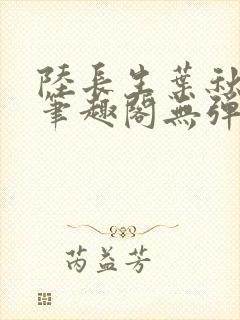 陸長生葉秋
筆趣閣無彈
芮益芳